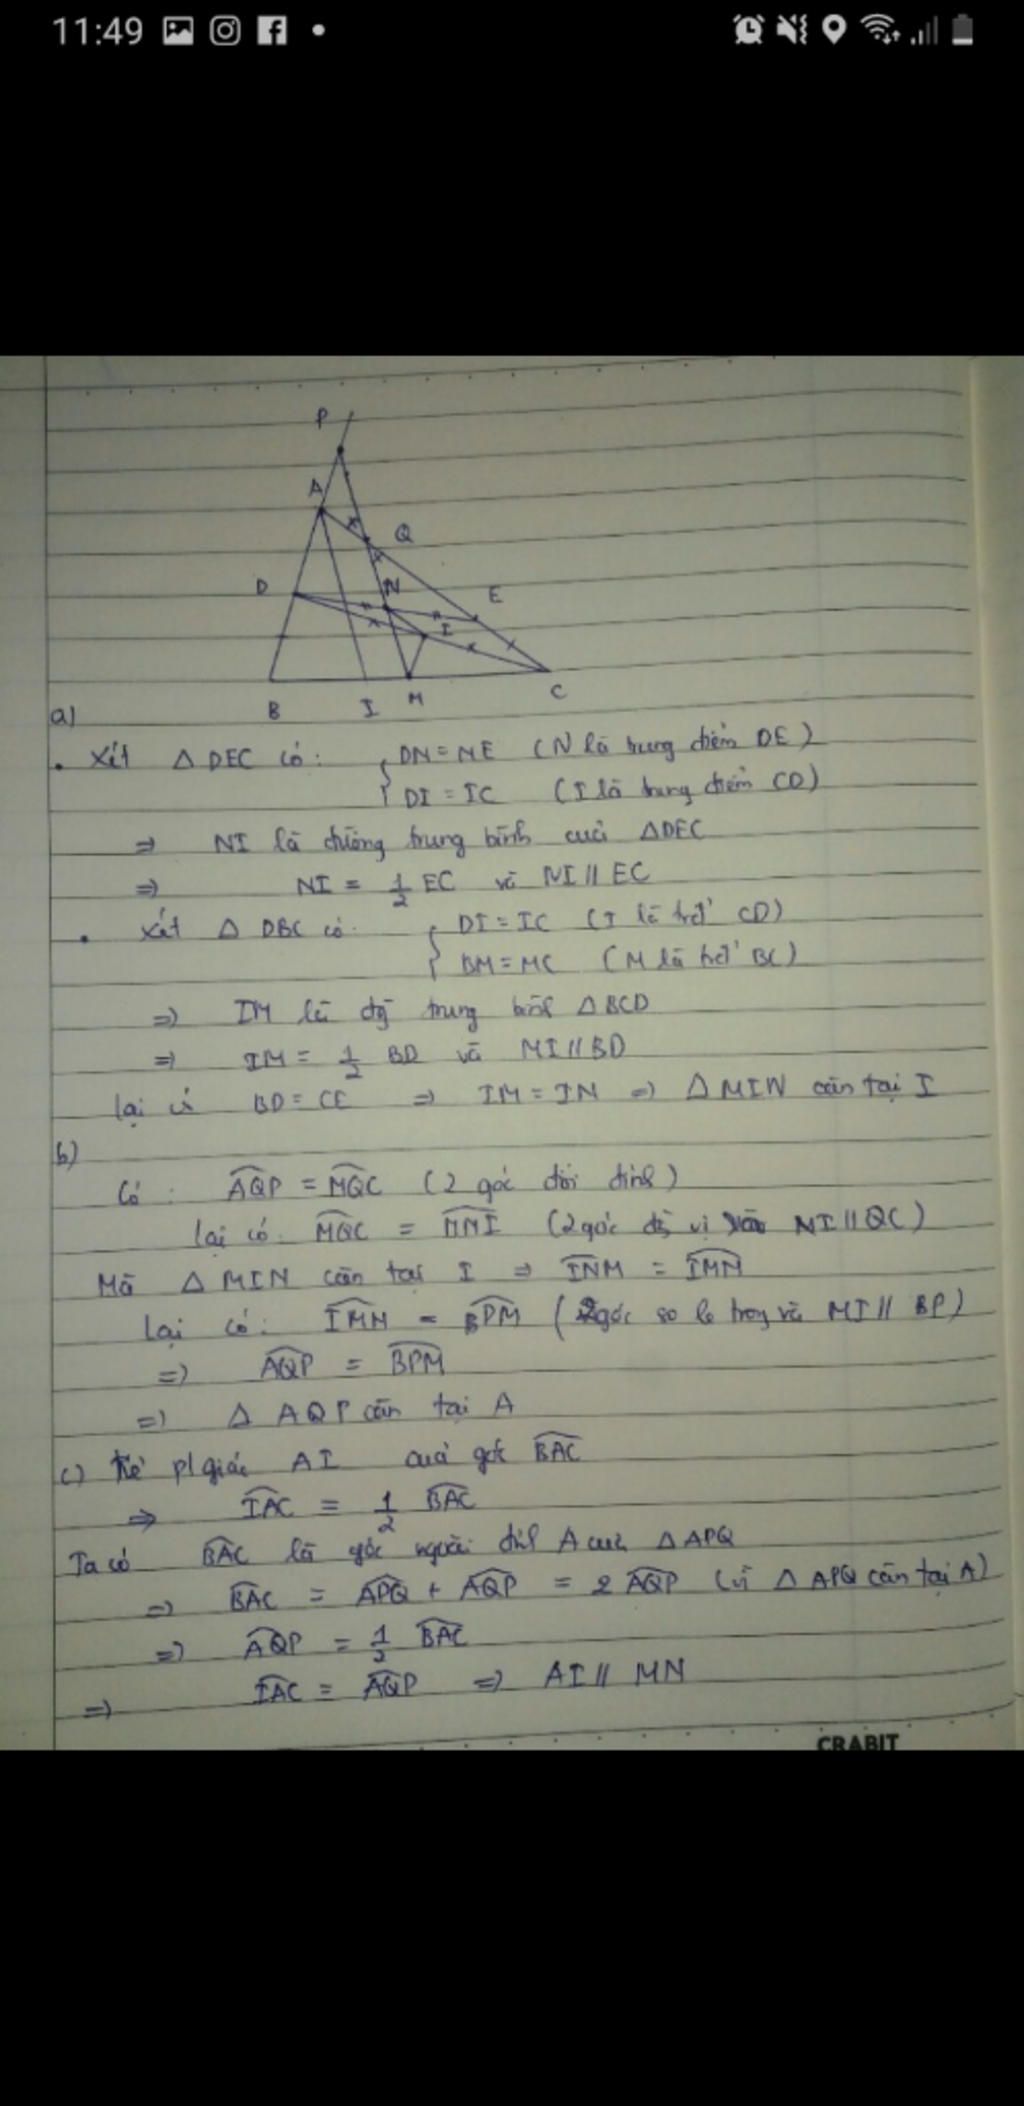 11:49
P
A
Q
D
N
E
I
B
I
M
C
a)
• Xét △ DEC có: { DN = NE (N là trung điểm DE)
DI = IC (I là trung điểm CD)
⇒ NI là đường trung bình của △DEC
⇒ NI = 1/2 EC và NI // EC
• Xét △ DBC có: { DI = IC (I là trđ' CD)
BM = MC (M là trđ' BC)
⇒ IM là đg̃ trung bình △BCD
⇒ IM = 1/2 BD và MI // BD
lại có BD = CE ⇒ IM = IN ⇒ △ MIN cân tại I
b)
Có: \widehat{AQP} = \widehat{MQC} (2 góc đối đỉnh)
lại có: \widehat{MQC} = \widehat{MNI} (2 góc đg̃ vị NI // QC)
Mà △ MIN cân tại I ⇒ \widehat{INM} = \widehat{IMN}
Lại có: \widehat{IMN} = \widehat{BPM} (2 góc so le trong và MI // BP)
⇒ \widehat{AQP} = \widehat{BPM}
⇒ △ AQP cân tại A
c) Kẻ p/giác AI của góc \widehat{BAC}
⇒ \widehat{IAC} = 1/2 \widehat{BAC}
Ta có \widehat{BAC} là góc ngoài đỉnh A của △ APQ
⇒ \widehat{BAC} = \widehat{APQ} + \widehat{AQP} = 2 \widehat{AQP} (vì △ APQ cân tại A)
⇒ \widehat{AQP} = 1/2 \widehat{BAC}
⇒ \widehat{IAC} = \widehat{AQP} ⇒ AI // MN
CRABIT